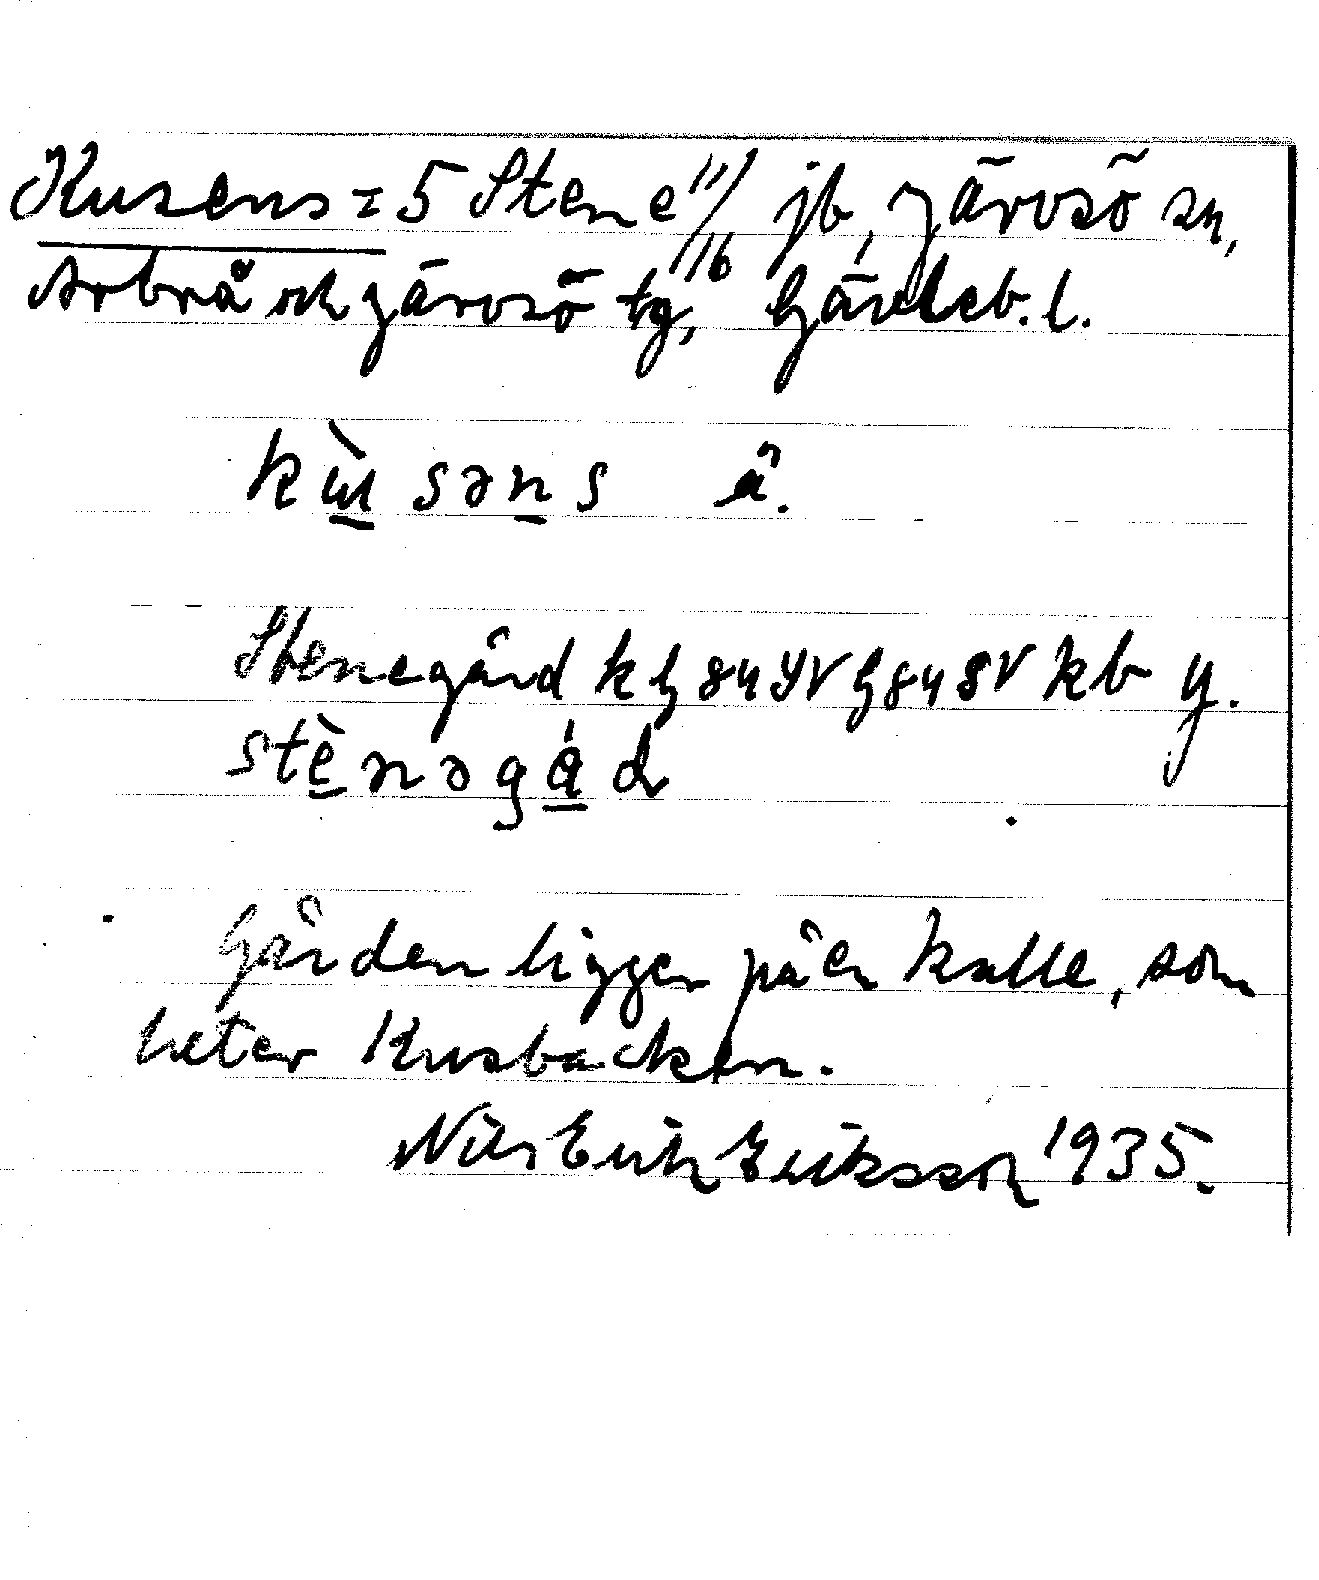 Kusens = 5 Stene 11/16 jb, Järvsö sn,
Arbrå och Järvsö tg, Gävleb. l.
kùsəns ä.
Stenegård k G 84 SV G 84 SV kb y.
stènəgád
Gården ligger på en kulle, som
heter Kusbacken.
Nils Erik Eriksson 1935.